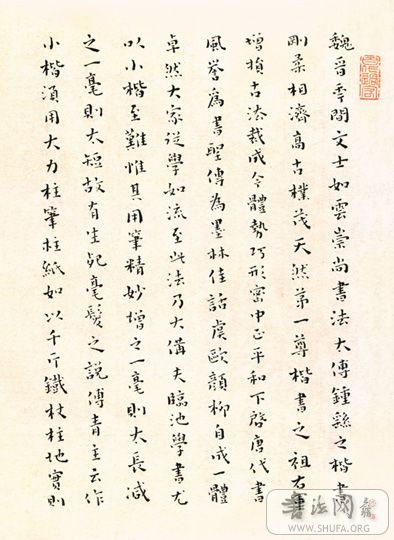 魏晉季間文士如雲崇尚書法太傅鍾繇之楷書
剛柔相濟高古樸茂天然第一尊楷書之祖右軍
增損古法裁成今體勢巧形密中正平和下啓唐代書
風譽爲書聖傳為墨林佳話虞歐顏柳自成一體
卓然大家從學如流至此法乃大備夫臨池學書尤
以小楷至難惟其用筆精妙增之一毫則太長減
之一毫則太短故有生死毫髮之說傅青主云作
小楷須用大力柱筆柱紙如以千斤鐵杖柱地實則
书法网
WWW.SHUFA.ORG